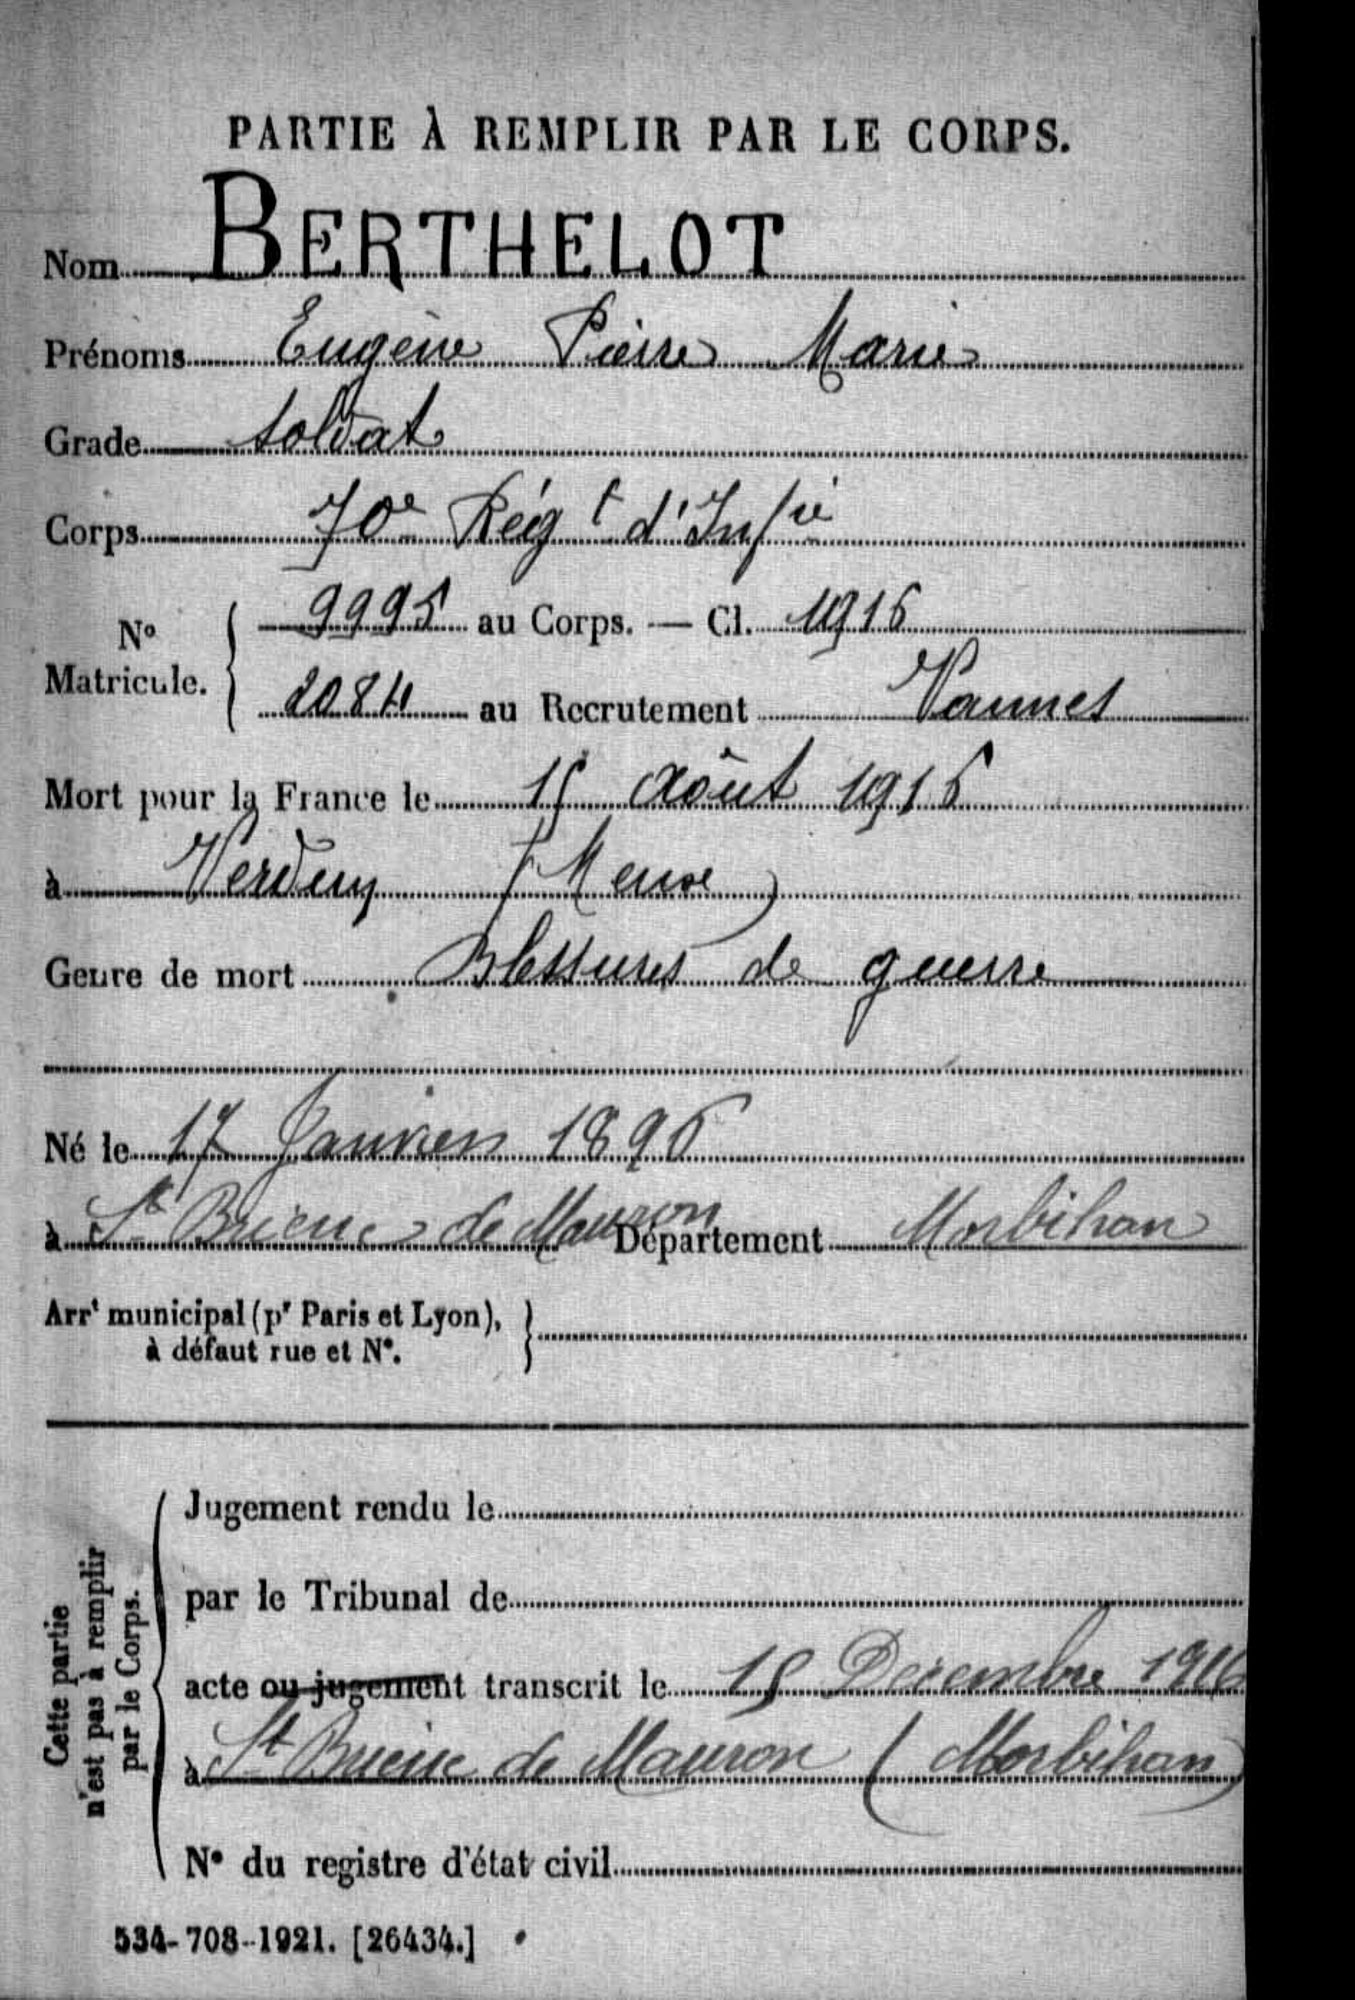 PARTIE À REMPLIR PAR LE CORPS.
Nom BERTHELOT
Prénoms Eugène Pierre Marie
Grade soldat
Corps 70e Régt d'Infie
N° Matricule. 9995 au Corps. — Cl. 1916
2084 au Recrutement Vannes
Mort pour la France le 15 Août 1916
à Verdun (Meuse)
Genre de mort Blessures de guerre
Né le 17 Janvier 1896
à St Brieuc de Mauron Département Morbihan
Arrt municipal (pr Paris et Lyon),
à défaut rue et N°.
Cette partie
n'est pas à remplir
par le Corps.
Jugement rendu le
par le Tribunal de
acte ou jugement transcrit le 15 Décembre 1916
à St Brieuc de Mauron (Morbihan)
N° du registre d'état civil
534-708-1921. [26434.]